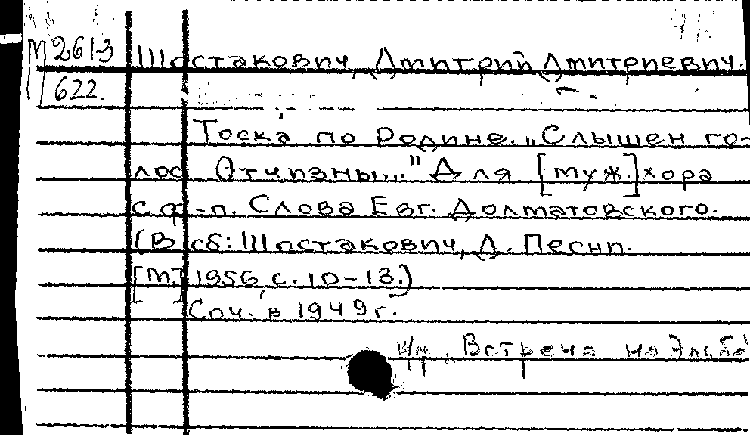 М 2613 Шостакович, Дмитрий Дмитриевич.
622
Тоска по Родине. „Слышен го-
лос Отчизны..." Для [муж.] хора
с ф.-п. Слова Евг. Долматовского.
(В сб: Шостакович, Д. Песни.
[М.] 1956, с. 10-13.)
Соч. в 1949 г.
Встреча на Эльбе